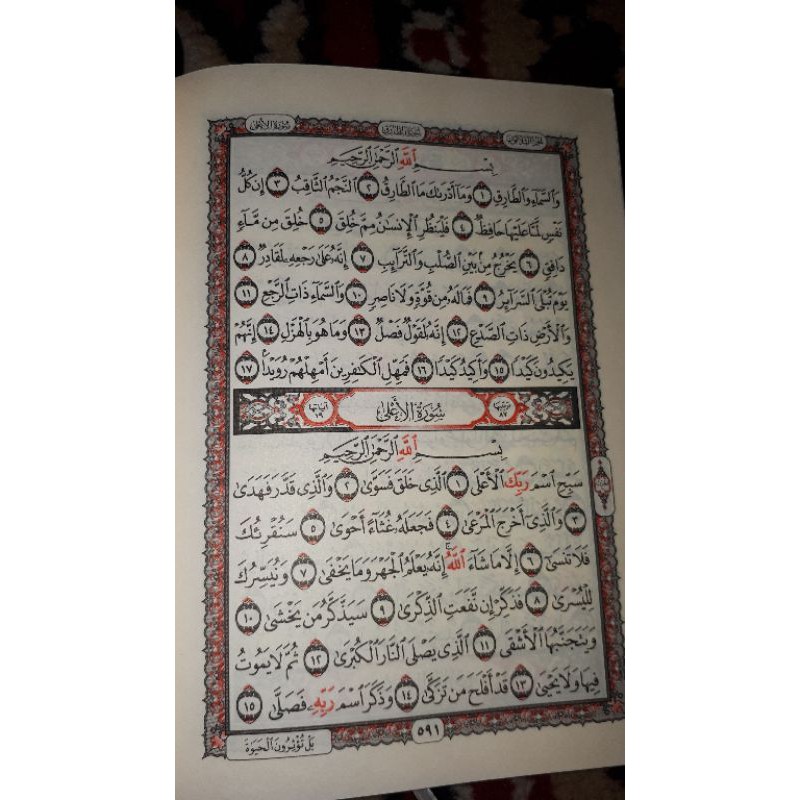 سُورَةُ الأَعْلَىٰ سُورَةُ الطَّارِقِ الجُزْءُ الثَّلَاثُونَ
بِسْمِ اللَّهِ الرَّحْمَٰنِ الرَّحِيمِ
وَالسَّمَاءِ وَالطَّارِقِ ١ وَمَا أَدْرَىٰكَ مَا الطَّارِقُ ٢ النَّجْمُ الثَّاقِبُ ٣ إِن كُلُّ
نَفْسٍ لَّمَّا عَلَيْهَا حَافِظٌ ٤ فَلْيَنظُرِ الْإِنسَٰنُ مِمَّ خُلِقَ ٥ خُلِقَ مِن مَّاءٍ
دَافِقٍ ٦ يَخْرُجُ مِن بَيْنِ الصُّلْبِ وَالتَّرَائِبِ ٧ إِنَّهُ عَلَىٰ رَجْعِهِ لَقَادِرٌ ٨
يَوْمَ تُبْلَى السَّرَائِرُ ٩ فَمَا لَهُ مِن قُوَّةٍ وَلَا نَاصِرٍ ١٠ وَالسَّمَاءِ ذَاتِ الرَّجْعِ ١١
وَالْأَرْضِ ذَاتِ الصَّدْعِ ١٢ إِنَّهُ لَقَوْلٌ فَصْلٌ ١٣ وَمَا هُوَ بِالْهَزْلِ ١٤ إِنَّهُمْ
يَكِيدُونَ كَيْدًا ١٥ وَأَكِيدُ كَيْدًا ١٦ فَمَهِّلِ الْكَٰفِرِينَ أَمْهِلْهُمْ رُوَيْدًا ١٧
ترتيبها ٨٧ سُورَةُ الأَعْلَىٰ آياتها ١٩
بِسْمِ اللَّهِ الرَّحْمَٰنِ الرَّحِيمِ
سَبِّحِ اسْمَ رَبِّكَ الْأَعْلَى ١ الَّذِي خَلَقَ فَسَوَّىٰ ٢ وَالَّذِي قَدَّرَ فَهَدَىٰ
٣ وَالَّذِي أَخْرَجَ الْمَرْعَىٰ ٤ فَجَعَلَهُ غُثَاءً أَحْوَىٰ ٥ سَنُقْرِئُكَ
فَلَا تَنسَىٰ ٦ إِلَّا مَا شَاءَ اللَّهُ إِنَّهُ يَعْلَمُ الْجَهْرَ وَمَا يَخْفَىٰ ٧ وَنُيَسِّرُكَ
لِلْيُسْرَىٰ ٨ فَذَكِّرْ إِن نَّفَعَتِ الذِّكْرَىٰ ٩ سَيَذَّكَّرُ مَن يَخْشَىٰ ١٠
وَيَتَجَنَّبُهَا الْأَشْقَى ١١ الَّذِي يَصْلَى النَّارَ الْكُبْرَىٰ ١٢ ثُمَّ لَا يَمُوتُ
فِيهَا وَلَا يَحْيَىٰ ١٣ قَدْ أَفْلَحَ مَن تَزَكَّىٰ ١٤ وَذَكَرَ اسْمَ رَبِّهِ فَصَلَّىٰ ١٥
٥٩١
بَلْ تُؤْثِرُونَ الْحَيَوٰةَ